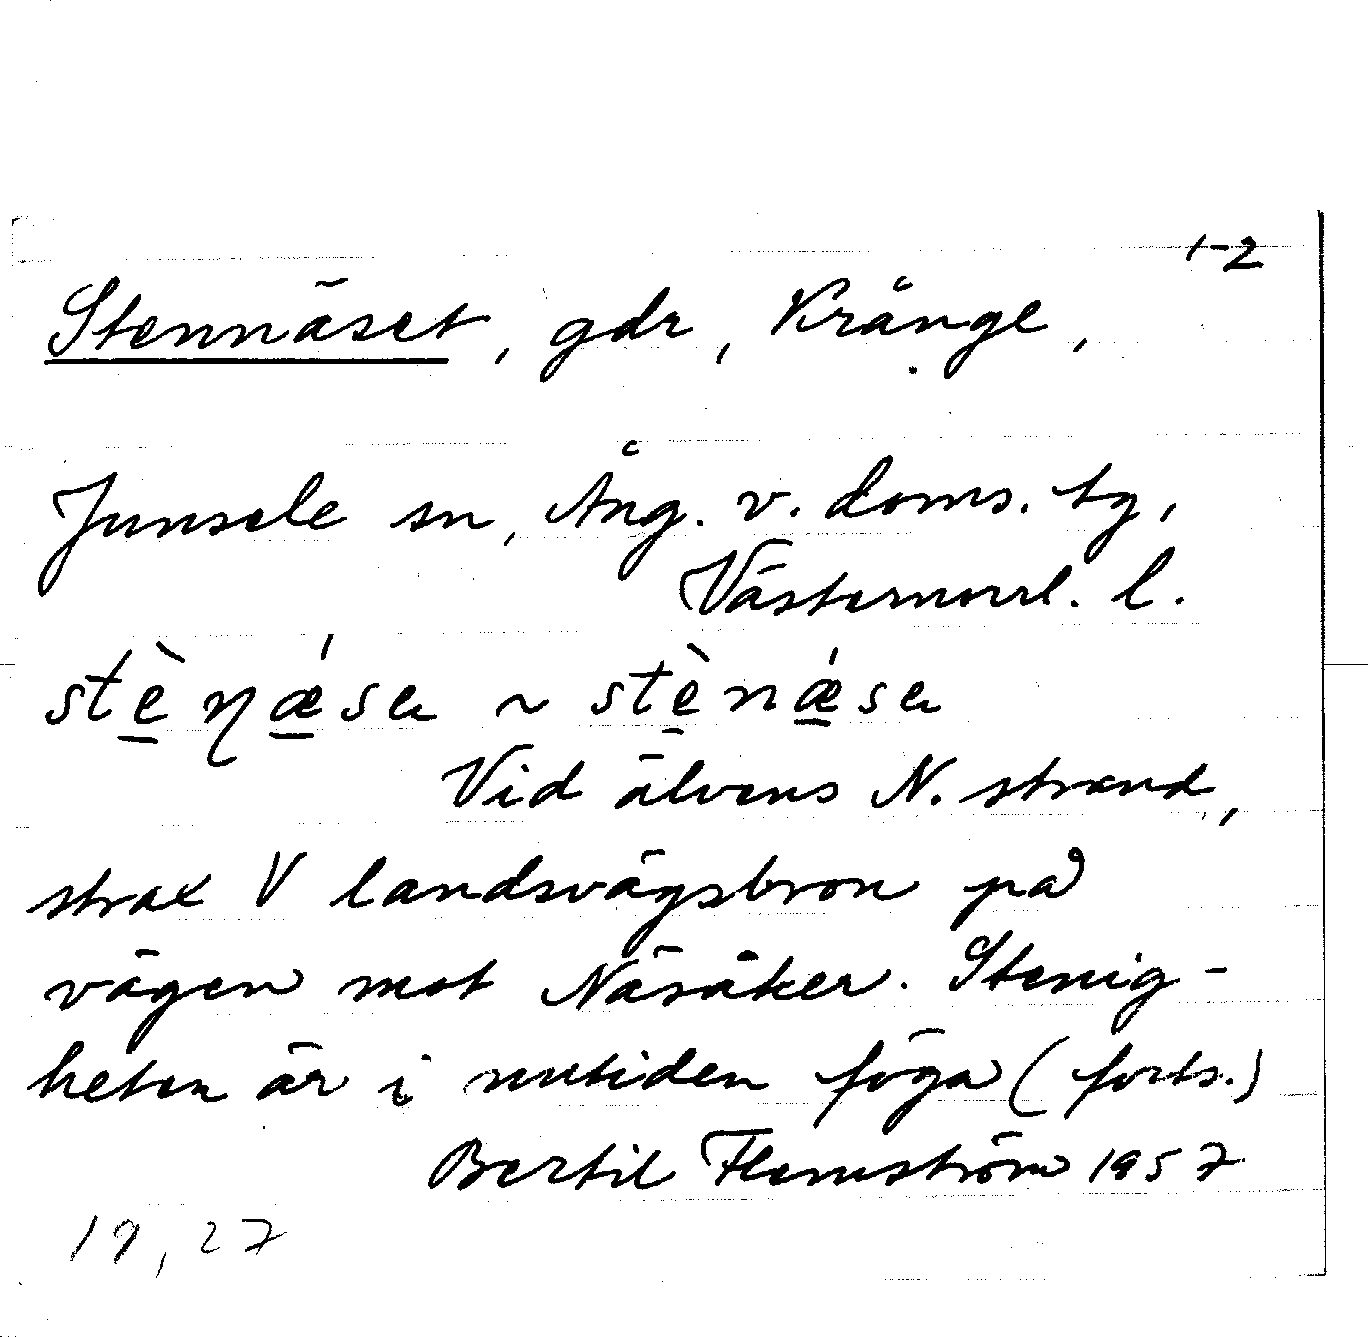 1-2
Stennäset, gdr, Krånge,
Junsele sn, Ång. v. doms. tg,
Västernorrl. l.
stè̱ŋǽ̱sa ~ stè̱nǽ̱sa
Vid älvens N. strand,
strax V landsvägsbron på
vägen mot Näsåker. Stenig-
heten är i nutiden föga (forts.)
Bertil Flemström 1957
19,27